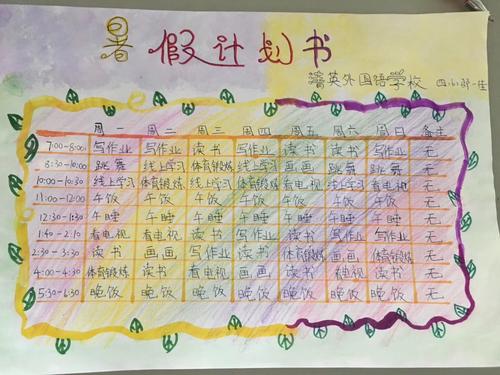 暑假计划书
菁英外国语学校
周一 周二 周三 周四 周五 周六 周日 备注
7:00-8:00 写作业 写作业 读书 写作业 读书 写作业 读书 无
8:30-10:00 跳舞 线上学习 体育锻炼 体育锻炼 画画 跳舞 跳舞 无
10:00-10:30 线上学习 体育锻炼 线上学习 体育锻炼 看电视 线上学习 看电视 无
11:00-12:00 午饭 午饭 午饭 午饭 午饭 午饭 午饭 无
12:30-1:30 午睡 午睡 午睡 午睡 午睡 午睡 午睡 无
1:40-2:10 看电视 看电视 读书 写作业 读书 写作业 写作业 无
2:30-3:30 读书 画画 写作业 读书 体育锻炼 画画 体育锻炼 无
4:00-4:30 体育锻炼 读书 看电视 画画 读书 看电视 读书 无
5:30-6:30 晚饭 晚饭 晚饭 晚饭 晚饭 晚饭 晚饭 无